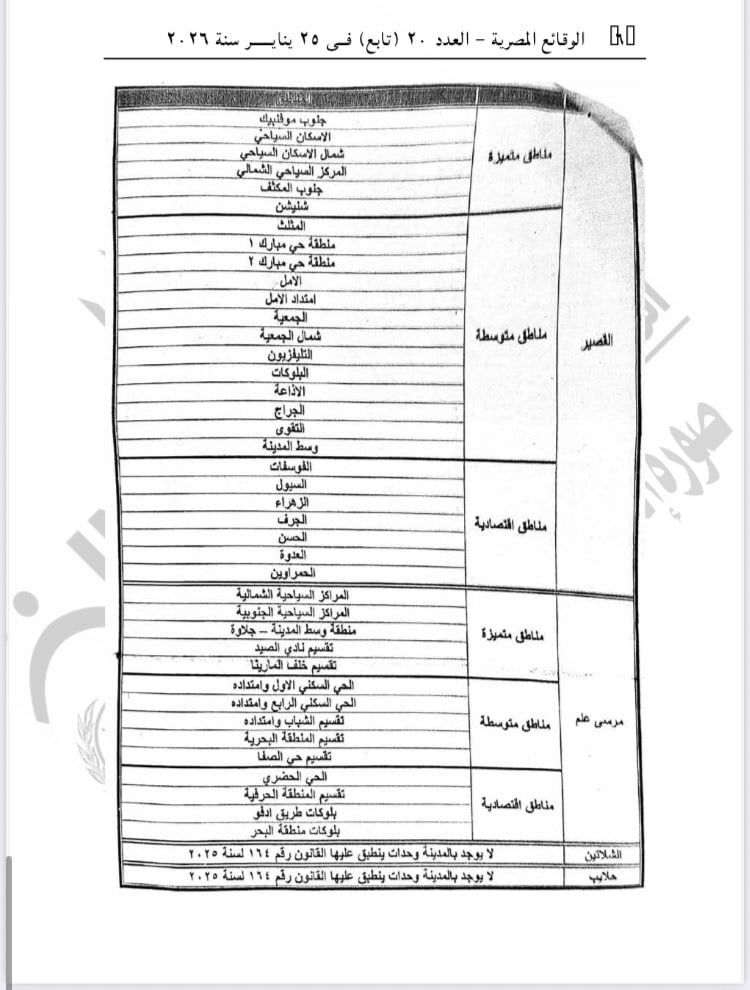 الوقائع المصرية – العدد ٢٠ (تابع) فى ٢٥ ينايـر سنة ٢٠٢٦
القصير
مناطق متميزة
جنوب موفنبيك
الاسكان السياحي
شمال الاسكان السياحي
المركز السياحي الشمالي
جنوب المكثف
شنيشن
مناطق متوسطة
المثلث
منطقة حي مبارك ١
منطقة حي مبارك ٢
الامل
امتداد الامل
الجمعية
شمال الجمعية
التليفزيون
البلوكات
الاذاعة
الجراج
التقوى
وسط المدينة
مناطق اقتصادية
الفوسفات
السيول
الزهراء
الجرف
الحسن
العدوة
الحمراوين
مرسى علم
مناطق متميزة
المراكز السياحية الشمالية
المراكز السياحية الجنوبية
منطقة وسط المدينة – جلاوة
تقسيم نادي الصيد
تقسيم خلف المارينا
مناطق متوسطة
الحي السكني الاول وامتداده
الحي السكني الرابع وامتداده
تقسيم الشباب وامتداده
تقسيم المنطقة البحرية
تقسيم حي الصفا
مناطق اقتصادية
الحي الحضري
تقسيم المنطقة الحرفية
بلوكات طريق ادفو
بلوكات منطقة البحر
الشلاتين
لا يوجد بالمدينة وحدات ينطبق عليها القانون رقم ١٦٤ لسنة ٢٠٢٥
حلايب
لا يوجد بالمدينة وحدات ينطبق عليها القانون رقم ١٦٤ لسنة ٢٠٢٥